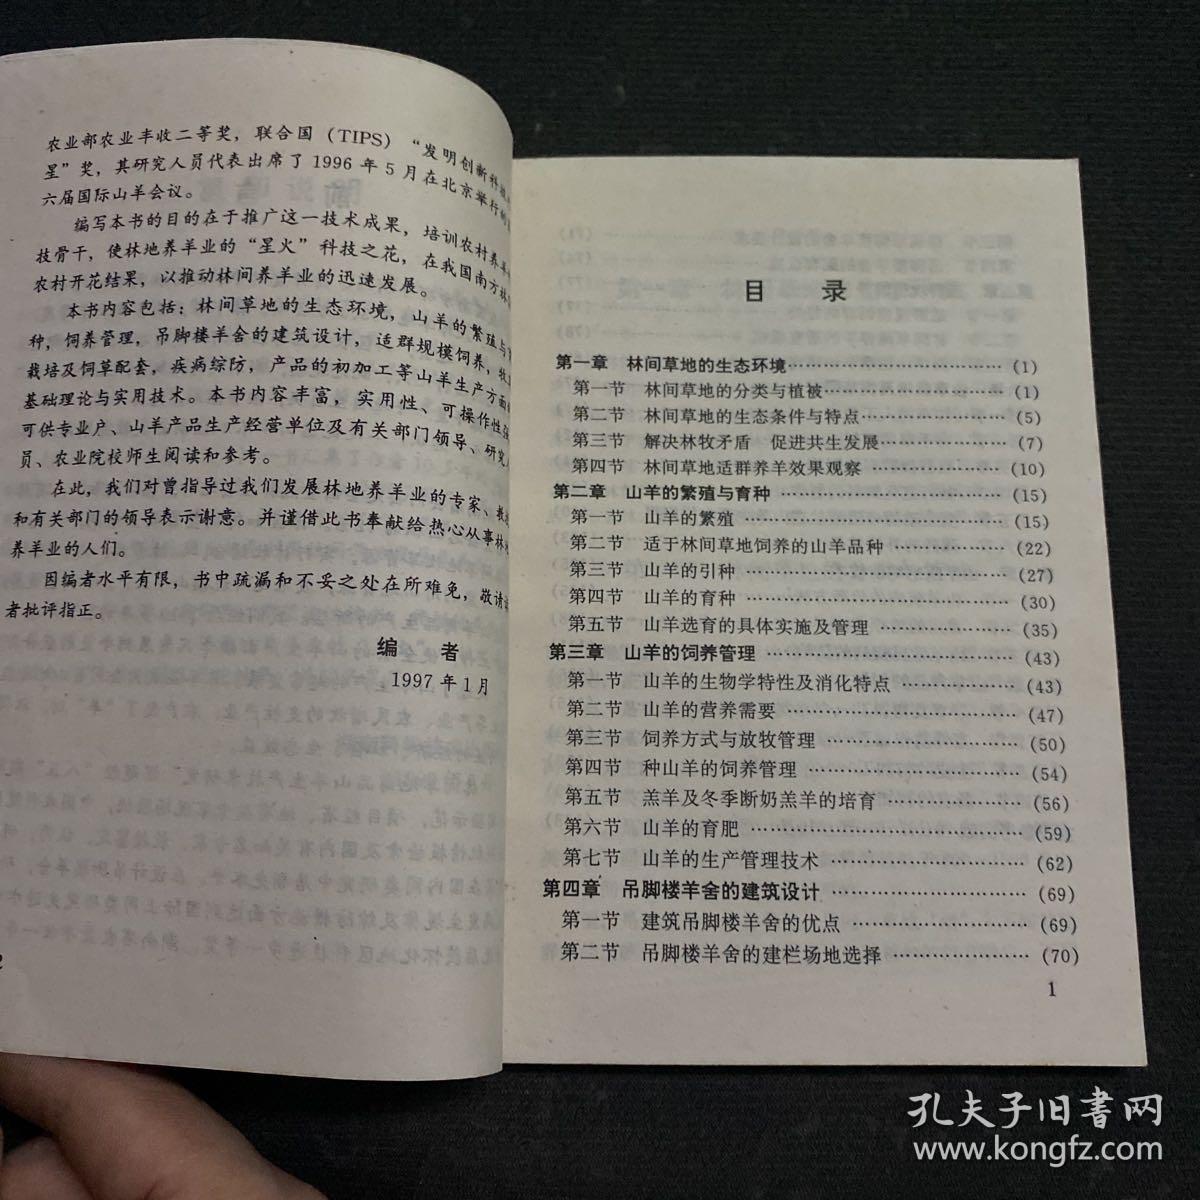 农业部农业丰收二等奖，联合国（TIPS）“发明创新科技
星”奖，其研究人员代表出席了1996年5月在北京举行的
六届国际山羊会议。
编写本书的目的在于推广这一技术成果，培训农村养羊
技骨干，使林地养羊业的“星火”科技之花，在我国南方林
农村开花结果，以推动林间养羊业的迅速发展。
本书内容包括：林间草地的生态环境，山羊的繁殖与
种，饲养管理，吊脚楼羊舍的建筑设计，适群规模饲养，牧
栽培及饲草配套，疾病综防，产品的初加工等山羊生产方面
基础理论与实用技术。本书内容丰富，实用性、可操作性强
可供专业户、山羊产品生产经营单位及有关部门领导、研究
员、农业院校师生阅读和参考。
在此，我们对曾指导过我们发展林地养羊业的专家、教
和有关部门的领导表示谢意。并谨借此书奉献给热心从事林
养羊业的人们。
因编者水平有限，书中疏漏和不妥之处在所难免，敬请
者批评指正。
编 者
1997年1月
2
目 录
第一章 林间草地的生态环境……………………………（1）
第一节 林间草地的分类与植被………………………（1）
第二节 林间草地的生态条件与特点…………………（5）
第三节 解决林牧矛盾 促进共生发展………………（7）
第四节 林间草地适群养羊效果观察…………………（10）
第二章 山羊的繁殖与育种………………………………（15）
第一节 山羊的繁殖……………………………………（15）
第二节 适于林间草地饲养的山羊品种………………（22）
第三节 山羊的引种……………………………………（27）
第四节 山羊的育种……………………………………（30）
第五节 山羊选育的具体实施及管理…………………（35）
第三章 山羊的饲养管理…………………………………（43）
第一节 山羊的生物学特性及消化特点………………（43）
第二节 山羊的营养需要………………………………（47）
第三节 饲养方式与放牧管理…………………………（50）
第四节 种山羊的饲养管理……………………………（54）
第五节 羔羊及冬季断奶羔羊的培育…………………（56）
第六节 山羊的育肥……………………………………（59）
第七节 山羊的生产管理技术…………………………（62）
第四章 吊脚楼羊舍的建筑设计…………………………（69）
第一节 建筑吊脚楼羊舍的优点………………………（69）
第二节 吊脚楼羊舍的建栏场地选择…………………（70）
1
孔夫子旧書网
www.kongfz.com